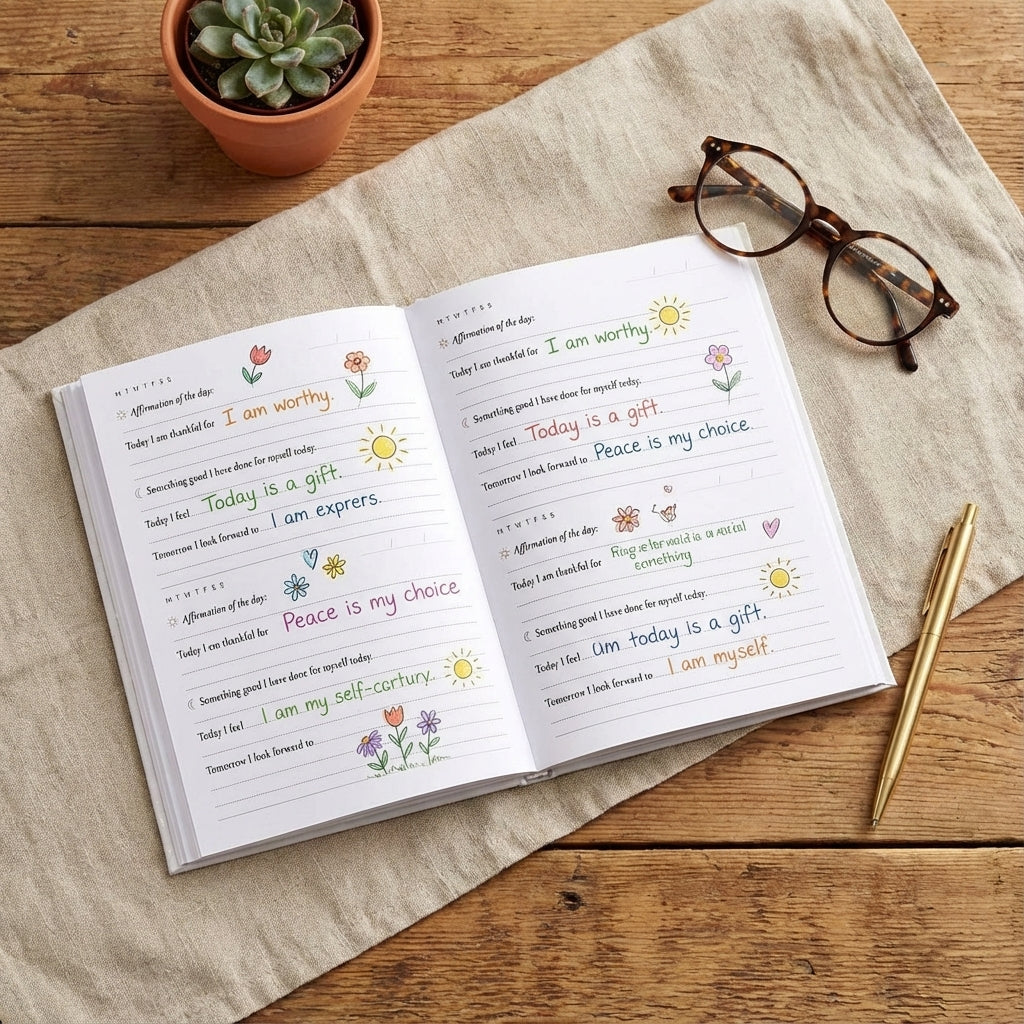 M T W T F S S
Affirmation of the day:
Today I am thankful for I am worthy.
Something good I have done for myself today.
Today I feel Today is a gift.
Tomorrow I look forward to I am exprers.
M T W T F S S
Affirmation of the day:
Today I am thankful for Peace is my choice
Something good I have done for myself today.
Today I feel I am my self-cartury.
Tomorrow I look forward to
M T W T F S S
Affirmation of the day:
Today I am thankful for I am worthy.
Something good I have done for myself today.
Today I feel Today is a gift.
Tomorrow I look forward to Peace is my choice.
M T W T F S S
Affirmation of the day:
Today I am thankful for
something
Something good I have done for myself today.
Today I feel am today is a gift.
Tomorrow I look forward to I am myself.